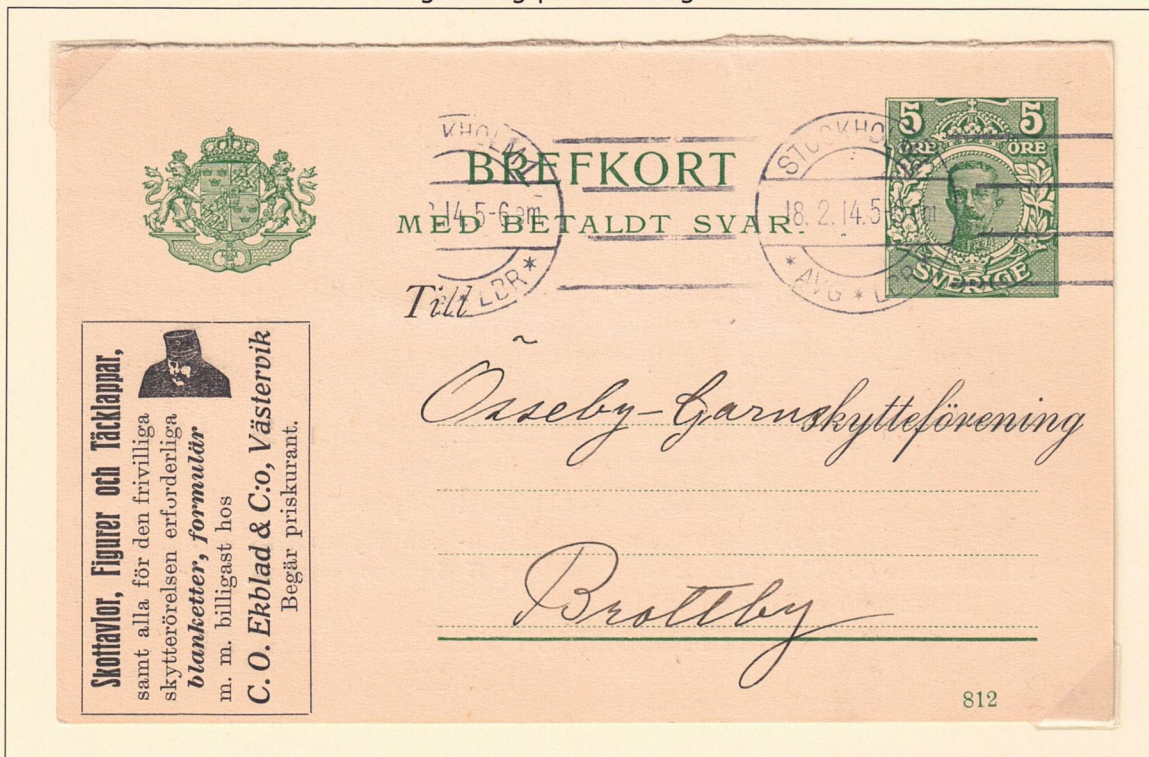 5 5
ÖRE ÖRE
SVERIGE
BREFKORT
MED BETALDT SVAR.
KHOLM
14.5-6 em
LBR *
STOCKHO
18.2.14.5-6 em
* AVG * LBR *
Till
Össeby-Garnskytteförening
Brottby
812
Skottavlor, Figurer och Täcklappar,
samt alla för den frivilliga
skytterörelsen erforderliga
blanketter, formulär
m. m. billigast hos
C. O. Ekblad & C:o, Västervik
Begär priskurant.